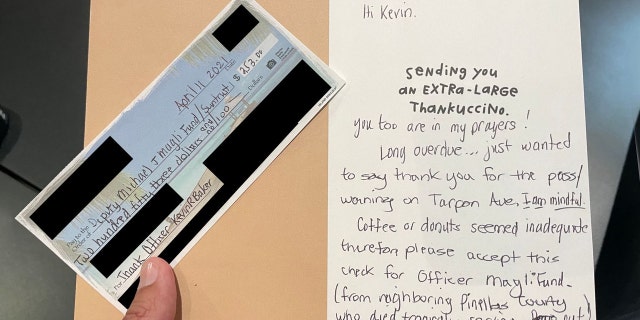 April 11 2021
$ 253.00
Pay to the Order of Deputy Michael J Magli Fund/Suntrust
Two hundred fifty three dollars and /100 Dollars
For Thank Officer Kevin R Baker
Hi Kevin.
SENDING YOU
AN EXTRA-LARGE
THANKUCCINO.
you too are in my prayers!
Long overdue... just wanted
to say thank you for the pass/
warning on Tarpon Ave, I am mindful.
Coffee or donuts seemed inadequate
therefore please accept this
check for Officer Magli Fund.
(from neighboring Pinellas County
who died tragically